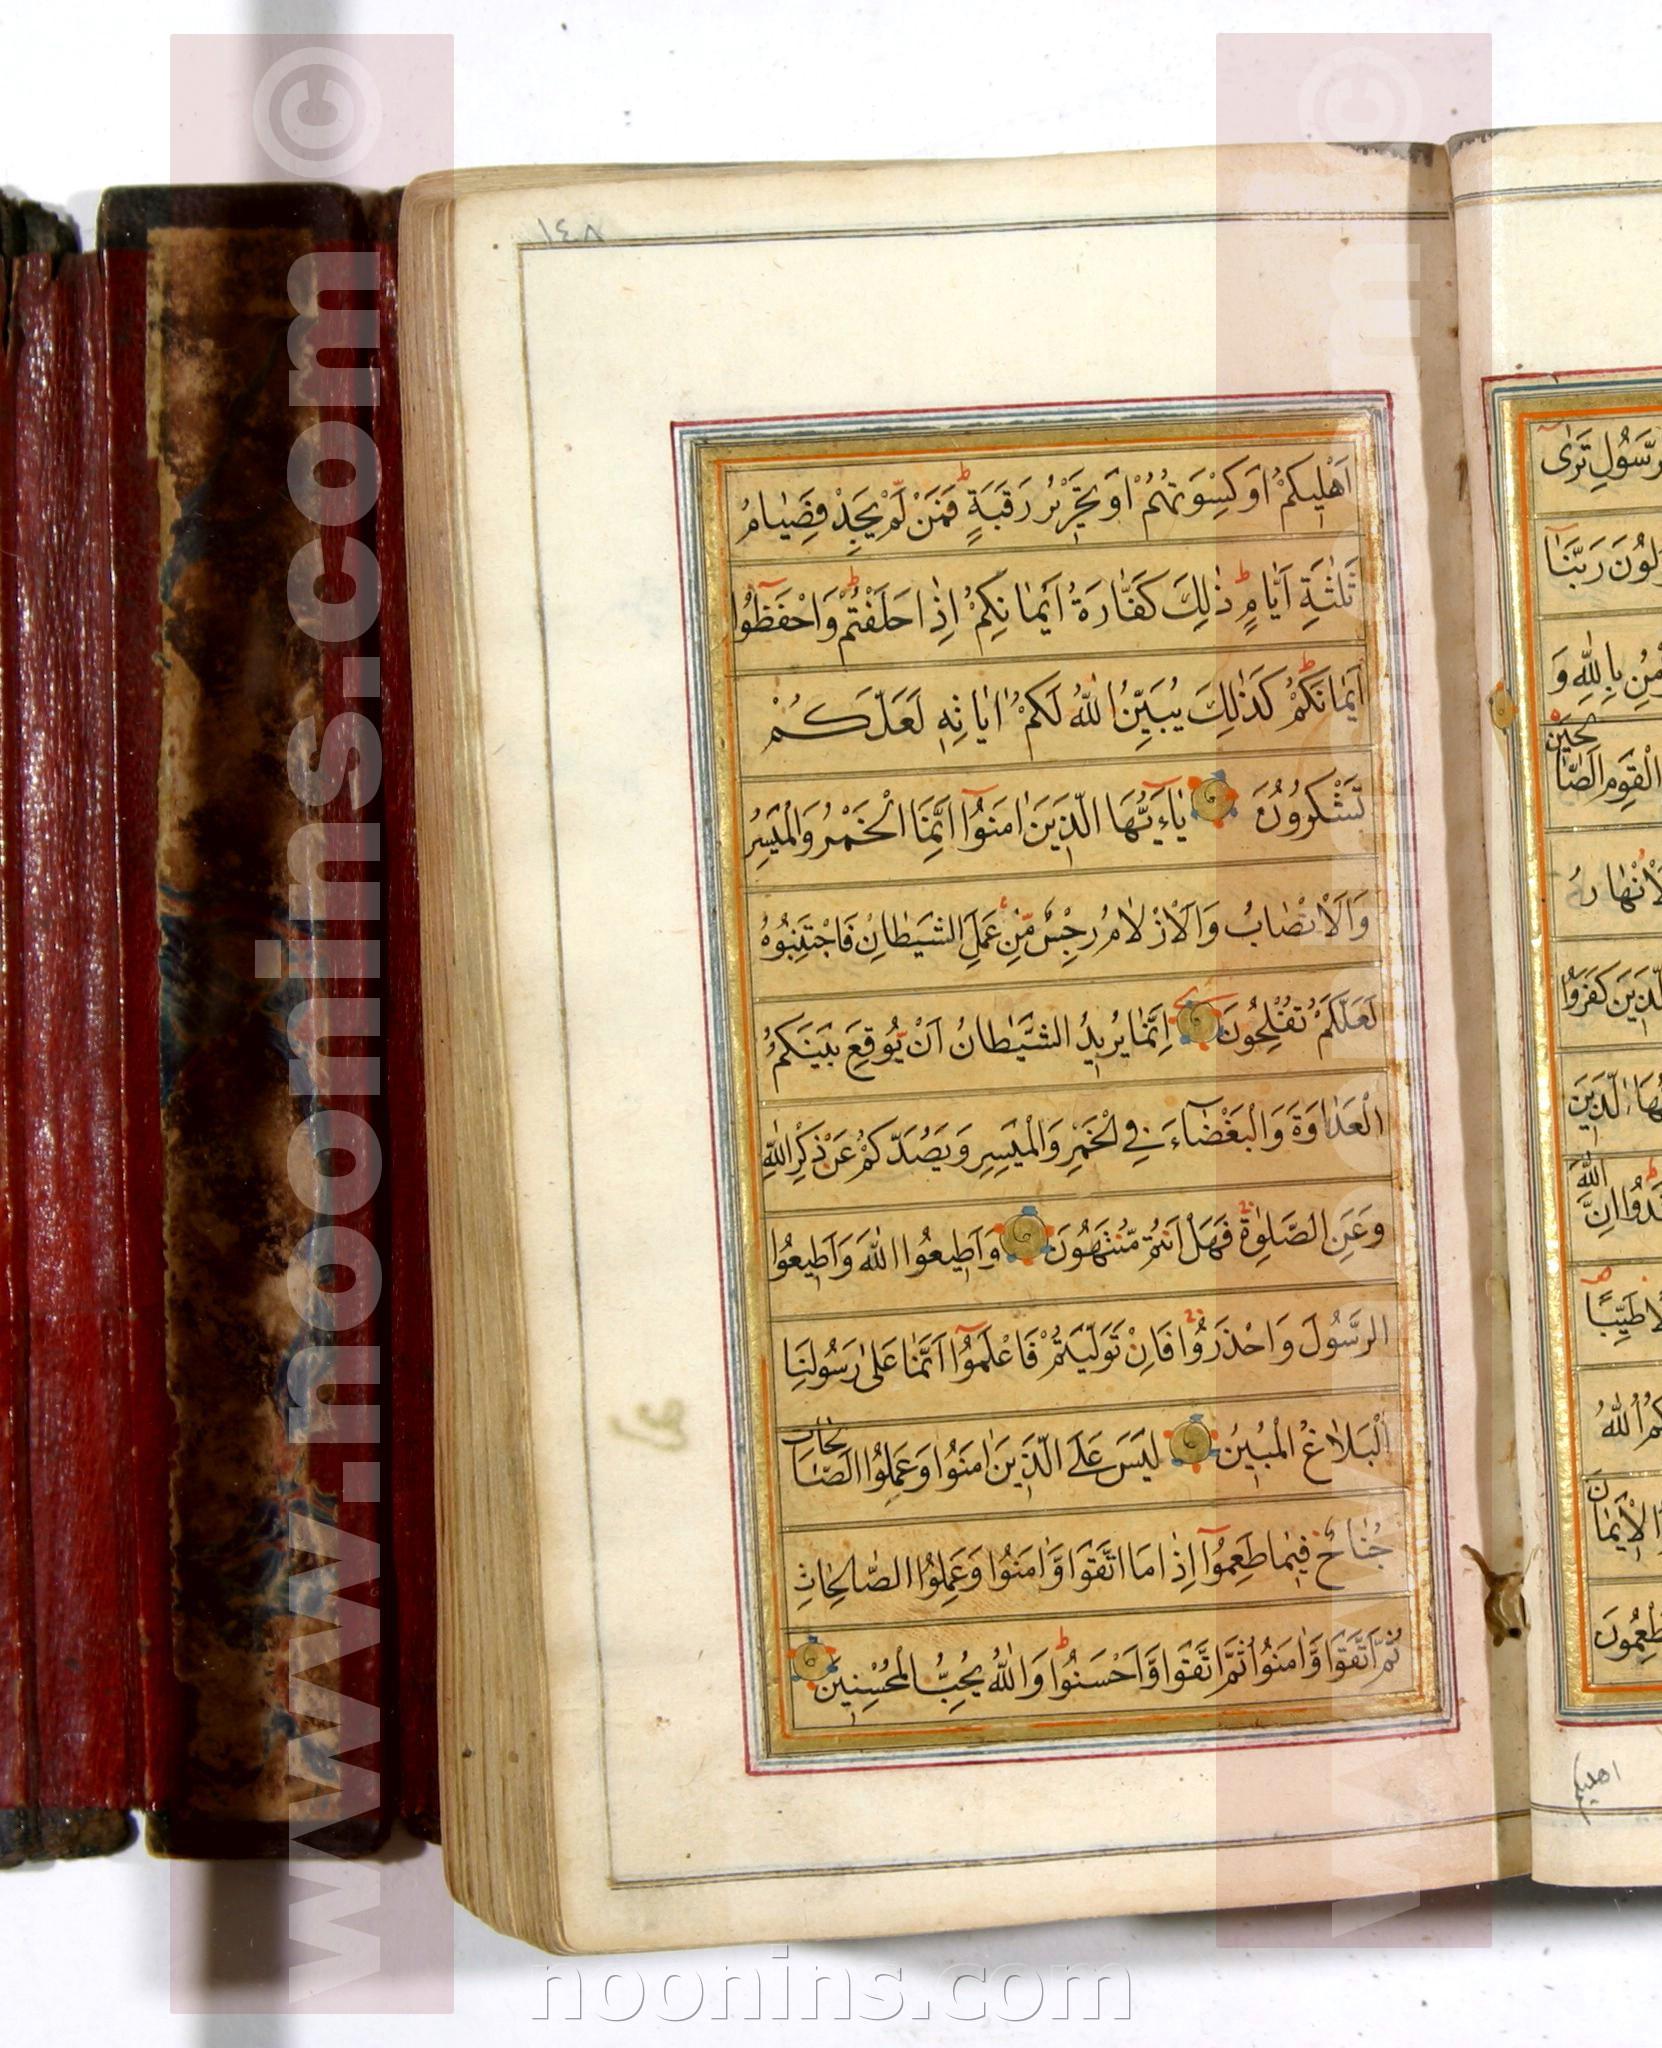 ١٤٨
اَهْلِیكُمْ اَوْ كِسْوَتُهُمْ اَوْ تَحْرٖیرُ رَقَبَةٍ فَمَنْ لَمْ یَجِدْ فَصِیٰامُ
ثَلٰثَةِ اَیّٰامٍ ذٰلِكَ كَفّٰارَةُ اَیْمٰانِكُمْ اِذٰا حَلَفْتُمْ وَاحْفَظُوٓا
اَیْمٰانَكُمْ كَذٰلِكَ یُبَیِّنُ اللّٰهُ لَكُمْ اٰیٰاتِهٖ لَعَلَّكُمْ
تَشْكُرُونَ یٰٓاءَیُّهَا الَّذٖینَ اٰمَنُوٓا اِنَّمَا الْخَمْرُ وَالْمَیْسِرُ
وَالْاَنْصٰابُ وَالْاَزْلٰامُ رِجْسٌ مِّنْ عَمَلِ الشَّیْطٰانِ فَاجْتَنِبُوهُ
لَعَلَّكُمْ تُفْلِحُونَ اِنَّمٰا یُرٖیدُ الشَّیْطٰانُ اَنْ یُّوقِعَ بَیْنَكُمُ
الْعَدٰاوَةَ وَالْبَغْضٰٓاءَ فِی الْخَمْرِ وَالْمَیْسِرِ وَیَصُدَّكُمْ عَنْ ذِكْرِ اللّٰهِ
وَعَنِ الصَّلٰوةِ فَهَلْ اَنْتُمْ مُّنْتَهُونَ وَاَطٖیعُوا اللّٰهَ وَاَطٖیعُوا
الرَّسُولَ وَاحْذَرُوا فَاِنْ تَوَلَّیْتُمْ فَاعْلَمُوٓا اَنَّمٰا عَلٰی رَسُولِنَا
الْبَلٰاغُ الْمُبٖینُ لَیْسَ عَلَی الَّذٖینَ اٰمَنُوا وَعَمِلُوا الصّٰالِحٰاتِ
جُنٰاحٌ فٖیمٰا طَعِمُوٓا اِذٰا مَا اتَّقَوْا وَّاٰمَنُوا وَعَمِلُوا الصّٰالِحٰاتِ
ثُمَّ اتَّقَوْا وَّاٰمَنُوا ثُمَّ اتَّقَوْا وَّاَحْسَنُوا وَاللّٰهُ یُحِبُّ الْمُحْسِنٖینَ
رَّسُولِ تَرٰٓی
رَبَّنٰٓا
بِاللّٰهِ وَ
الْقَوْمِ الصّٰالِحٖینَ
الْاَنْهٰارُ
الَّذٖینَ كَفَرُوا
الَّذٖینَ
اِنَّ اللّٰهَ
طَیِّبًا
اللّٰهُ
الْاَیْمٰانَ
اهلیكم
www.noonins.com ©
www.noonins.com ©
noonins.com